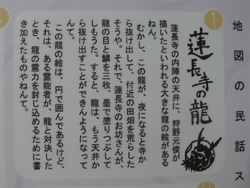 地図の民話ス
蓮長寺の龍
蓮長寺の内陣の天井に、狩野元俊が
描いたといわれる大きな龍の絵がある
んや。
むかし、この龍が、夜になると寺か
ら抜け出して、付近の田畑を荒らした
そうや。それで、蓮長寺のお坊さんが、
龍の目と鱗を三枚、墨で塗りつぶして
しもうた。すると、龍は、もう天井か
ら抜け出すことができんようになって
この龍の絵は、円で囲んであるけど、
それは、ある霊能者が、龍と対決した
とき、龍の霊力を封じ込めるために書
き加えたものやねんて。